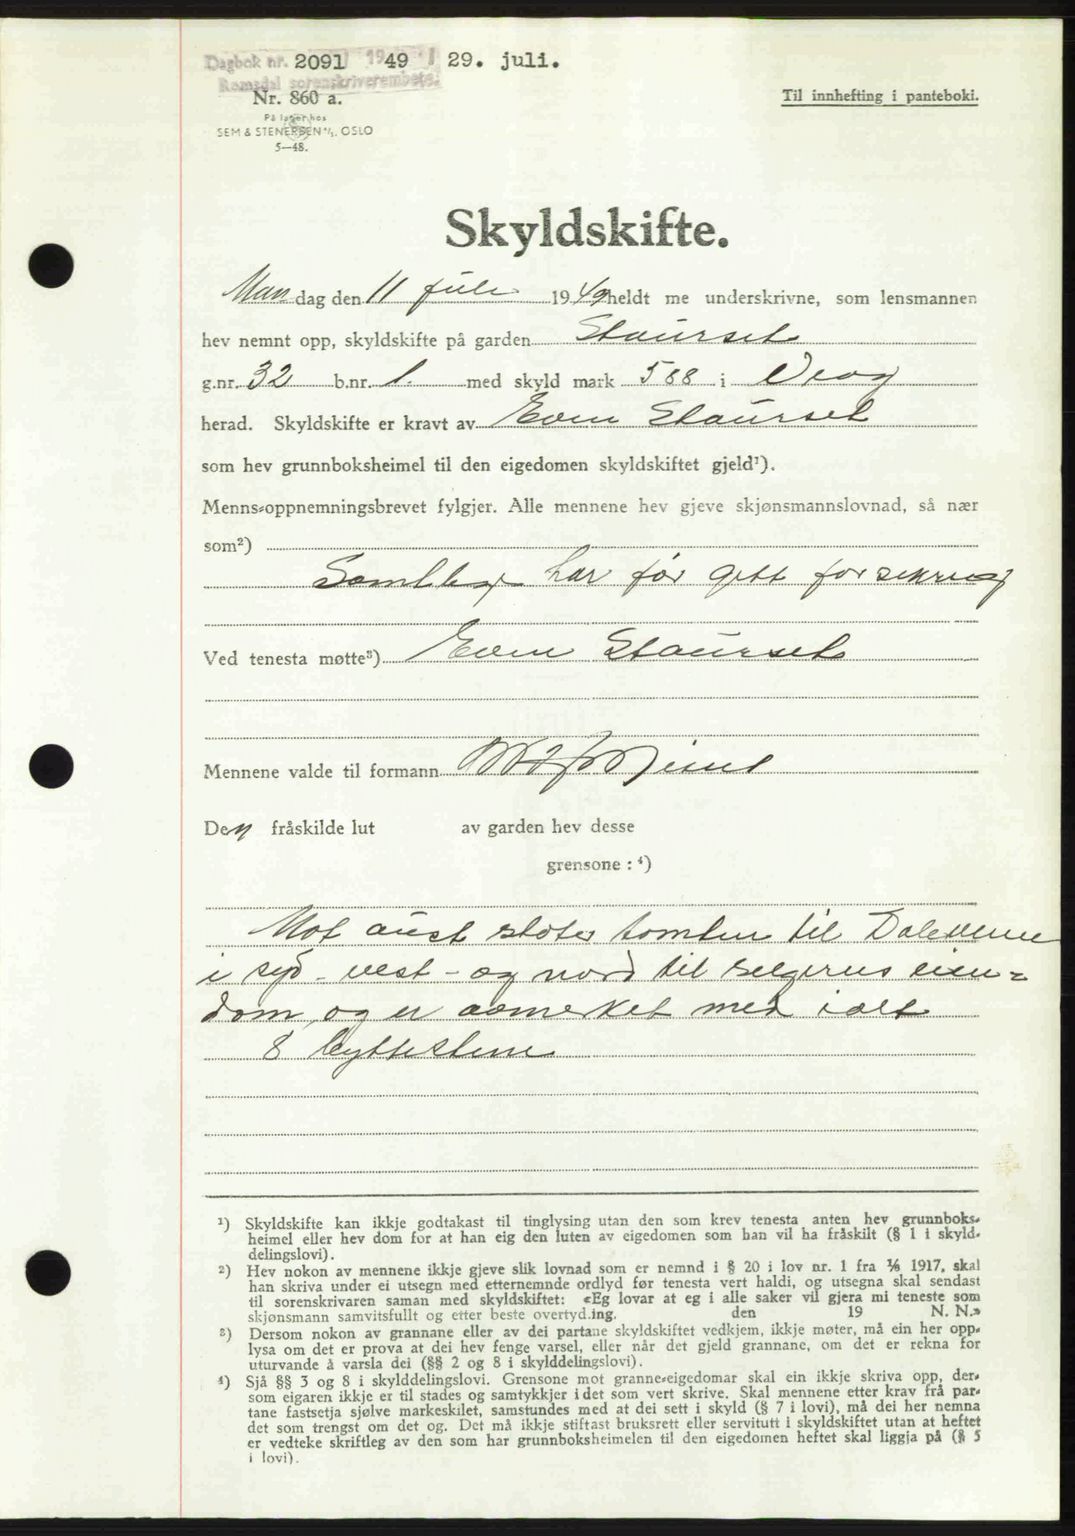 Dagbok nr. 2091 1949 29. juli.
Romsdal sorenskriverembete.
Nr. 860 a.
Til innhefting i panteboki.
På lager hos
SEM & STENERSEN A/S, OSLO
5—48.
Skyldskifte.
Mandag den 11 juli 1949 heldt me underskrivne, som lensmannen
hev nemnt opp, skyldskifte på garden Staurset
g.nr. 32 b.nr. 1. med skyld mark 588 i Veøy
herad. Skyldskifte er kravt av Even Staurset
som hev grunnboksheimel til den eigedomen skyldskiftet gjeld¹).
Menns-oppnemningsbrevet fylgjer. Alle mennene hev gjeve skjønsmannslovnad, så nær
som²)
Samtlige har før gitt forsikring
Ved tenesta møtte³) Even Staurset
Mennene valde til formann
Den fråskilde lut av garden hev desse
grensone : ⁴)
Mot aust støter tomten til Dalevenn
i syd - vest - og nord til selgerens eien=
dom og er avmerket med ialt
8 byttestene
¹) Skyldskifte kan ikkje godtakast til tinglysing utan den som krev tenesta anten hev grunnboks-
heimel eller hev dom for at han eig den luten av eigedomen som han vil ha fråskilt (§ 1 i skyld-
delingslovi).
²) Hev nokon av mennene ikkje gjeve slik lovnad som er nemnd i § 20 i lov nr. 1 fra ⅙ 1917, skal
han skriva under ei utsegn med etternemnde ordlyd før tenesta vert haldi, og utsegna skal sendast
til sorenskrivaren saman med skyldskiftet: «Eg lovar at eg i alle saker vil gjera mi teneste som
skjønsmann samvitsfullt og etter beste overtyding. den 19 N. N.»
³) Dersom nokon av grannane eller av dei partane skyldskiftet vedkjem, ikkje møter, må ein her opp-
lysa om det er prova at dei hev fenge varsel, eller når det gjeld grannane, om det er rekna for
uturvande å varsla dei (§§ 2 og 8 i skylddelingslovi).
⁴) Sjå §§ 3 og 8 i skylddelingslovi. Grensone mot granne-eigedomar skal ein ikkje skriva opp, der-
som eigaren ikkje er til stades og samtykkjer i det som vert skrive. Skal mennene etter krav frå par-
tane fastsetja sjølve markeskilet, samstundes med at dei sett i skyld (§ 7 i lovi), må dei her nemna
det som trengst om det og. Det må ikkje stiftast bruksrett eller servitutt i skyldskiftet utan at heftet
er vedteke skriftleg av den som har grunnboksheimelen til den eigedomen heftet skal liggja på (§ 5
i lovi).